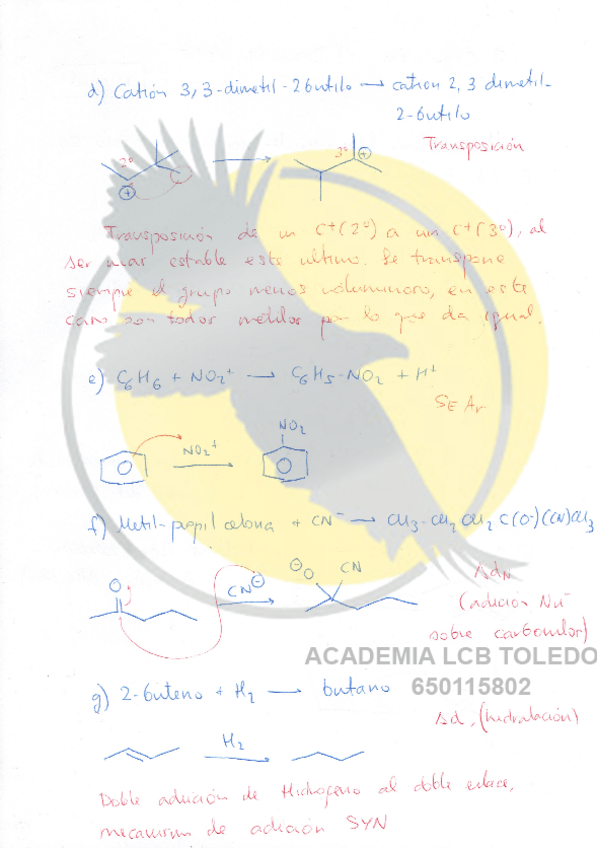 d) Catión 3,3-dimetil-2butilo → catión 2,3 dimetil-
2-butilo
Transposición
2º 3º
⊕ ⊕
Transposición de un C+(2º) a un C+(3º), al
ser mas estable este ultimo. Se transpone
siempre el grupo menos voluminoso, en este
caso son todos metilos por lo que da igual.
e) C6H6 + NO2+ → C6H5-NO2 + H+
SE Ar
NO2
NO2+
f) Metil-propil cetona + CN- → CH3-CH2 CH2 C(O-)(CN)CH3
O CN⊖ ⊖O CN
AdN
(adición Nu-
sobre carbonilos)
ACADEMIA LCB TOLEDO
650115802
g) 2-buteno + H2 → butano
Ad, (hidratación)
H2
Doble adición de Hidrogeno al doble enlace,
mecanismo de adición SYN